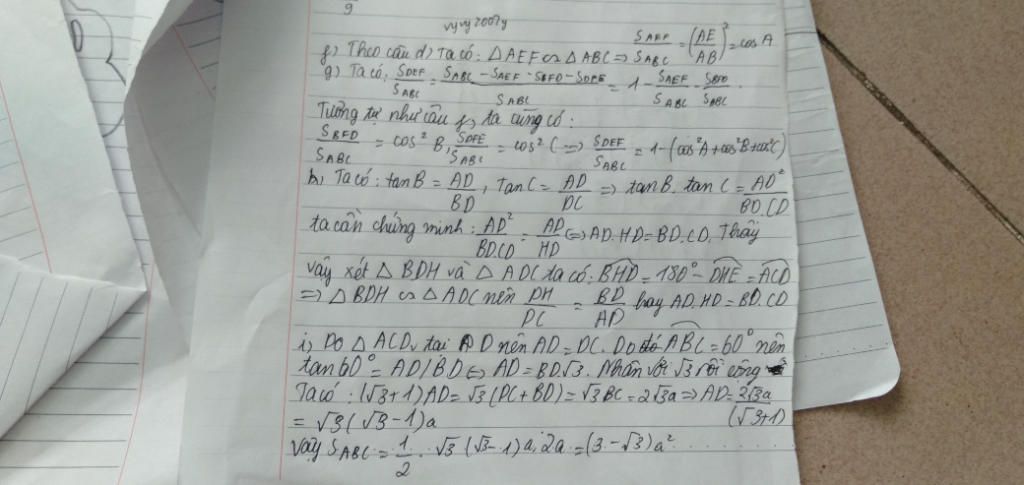 9
vyvy2007y
f) Theo câu d) Ta có: △AEF ∽ △ABC ⇒ S_AEF/S_ABC = (AE/AB)² = cos A
g) Ta có: S_DEF/S_ABC = (S_ABC - S_AEF - S_BFD - S_DCE)/S_ABC = 1 - S_AEF/S_ABC - S_BFD/S_ABC .
Tương tự như câu f, ta cũng có:
S_BFD/S_ABC = cos² B, S_DCE/S_ABC = cos² C ⇒ S_DEF/S_ABC = 1-(cos²A+cos²B+cos²C)
h, Ta có: tan B = AD/BD, Tan C = AD/DC ⇒ tan B. tan C = AD²/BD.CD
ta cần chứng minh: AD²/BD.CD = AD/HD ⇔ AD.HD = BD.CD. Thấy
vậy xét △ BDH và △ ADC ta có: BHD = 180° - DHE = ACD
⇒ △ BDH ∽ △ ADC nên DH/DC = BD/AD hay AD.HD = BD.CD
i, Do △ ACD v tại D nên AD = DC. Do đó ABC = 60° nên
tan 60° = AD/BD ⇔ AD = BD.√3. Nhân với √3 rồi cộng
Ta có: (√3+1)AD = √3(DC+BD) = √3 BC = 2√3a ⇒ AD = 2√3a/(√3+1)
= √3(√3-1)a
Vậy S_ABC = 1/2 . √3 (√3-1)a.2a = (3-√3)a²